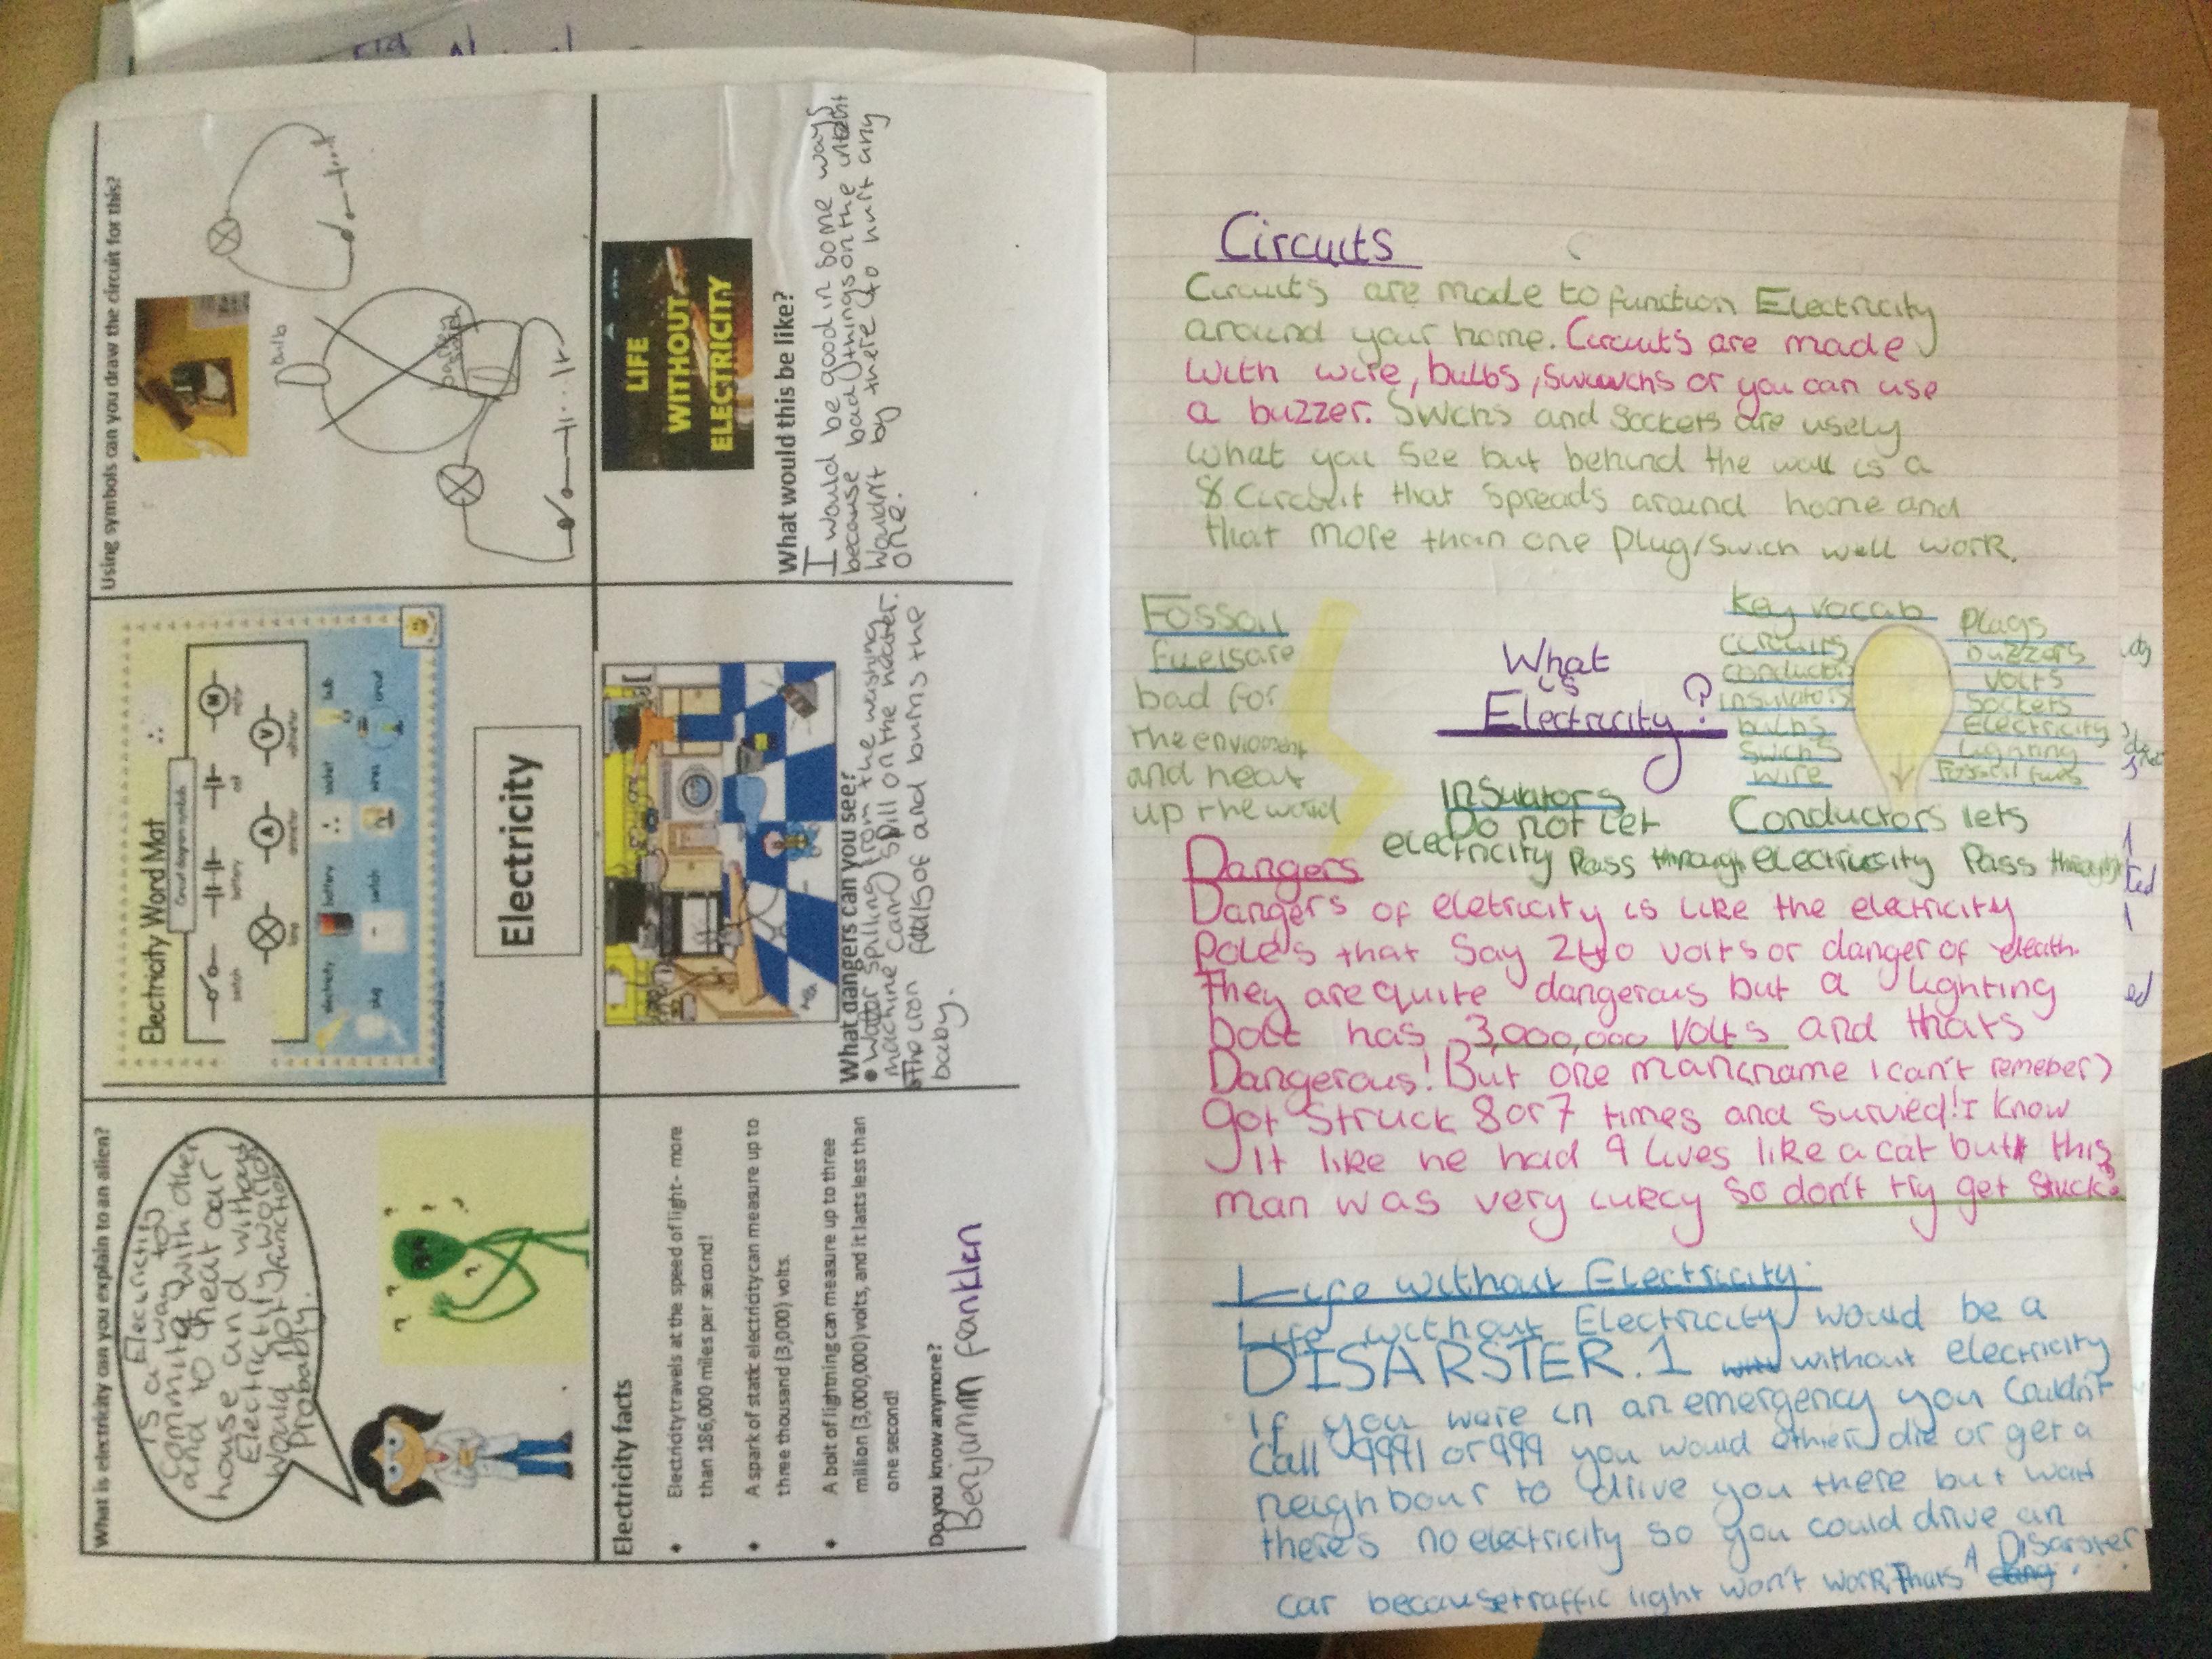 What is electricity can you explain to an alien?
Electricity
is a way to
with other
and to heat our
house and without
Electricity world
would not function
Probably.
Electricity Word Mat
Circuit diagram symbols
switch
battery
cell
motor
lamp
ammeter
voltmeter
electricity
battery
socket
bulb
plug
switch
wires
circuit
Electricity
Using symbols can you draw the circuit for this?
bulb
Electricity facts
• Electricity travels at the speed of light- more
than 186,000 miles per second!
• A spark of static electricity can measure up to
three thousand (3,000) volts.
• A bolt of lightning can measure up to three
million (3,000,000) volts, and it lasts less than
one second!
Do you know anymore?
Benjamin franklin
What dangers can you see?
• Water spilling from the washing
machine can spill on the heater.
• The iron falls of and burns the
baby.
LIFE
WITHOUT
ELECTRICITY
What would this be like?
I would be good in some ways
because bad things on the
wouldn't by there to hurt any
one.
Circuits
Circuits are made to function Electricity
around your home. Circuits are made
with wire, bulbs, or you can use
a buzzer. Swichs and sockets are usely
what you see but behind the wall is a
circuit that spreads around home and
that more than one plug/swich well work.
Fossoil
fuels are
bad for
the enviroment
and heat
up the world
What
is
Electricity?
Key vocab
circuits
conductors
insulators
bulbs
swichs
wire
Plugs
buzzers
volts
sockets
Electricity
Lighting
Fossil fuels
Insulators
Do not let
electricity pass through
Conductors lets
electricity pass through
Dangers
Dangers of eletricity is like the electricity
Poles that say 240 volts or danger of death.
They are quite dangerous but a lighting
bolt has 3,000,000 volts and thats
Dangerous! But one man(name I can't remeber)
got struck 8 or 7 times and survied! I know
it like he had 9 lives like a cat but this
man was very lukcy so don't try get stuck.
Life without Electricity.
Life without Electricity would be a
DISARSTER. 1 without electricity
if you were in an emergency you couldn't
call 9991 or 999 you would ethier die or get a
neighbour to drive you there but wait
there's no electricity so you could drive an
car because traffic light won't work. Thats A Disarster